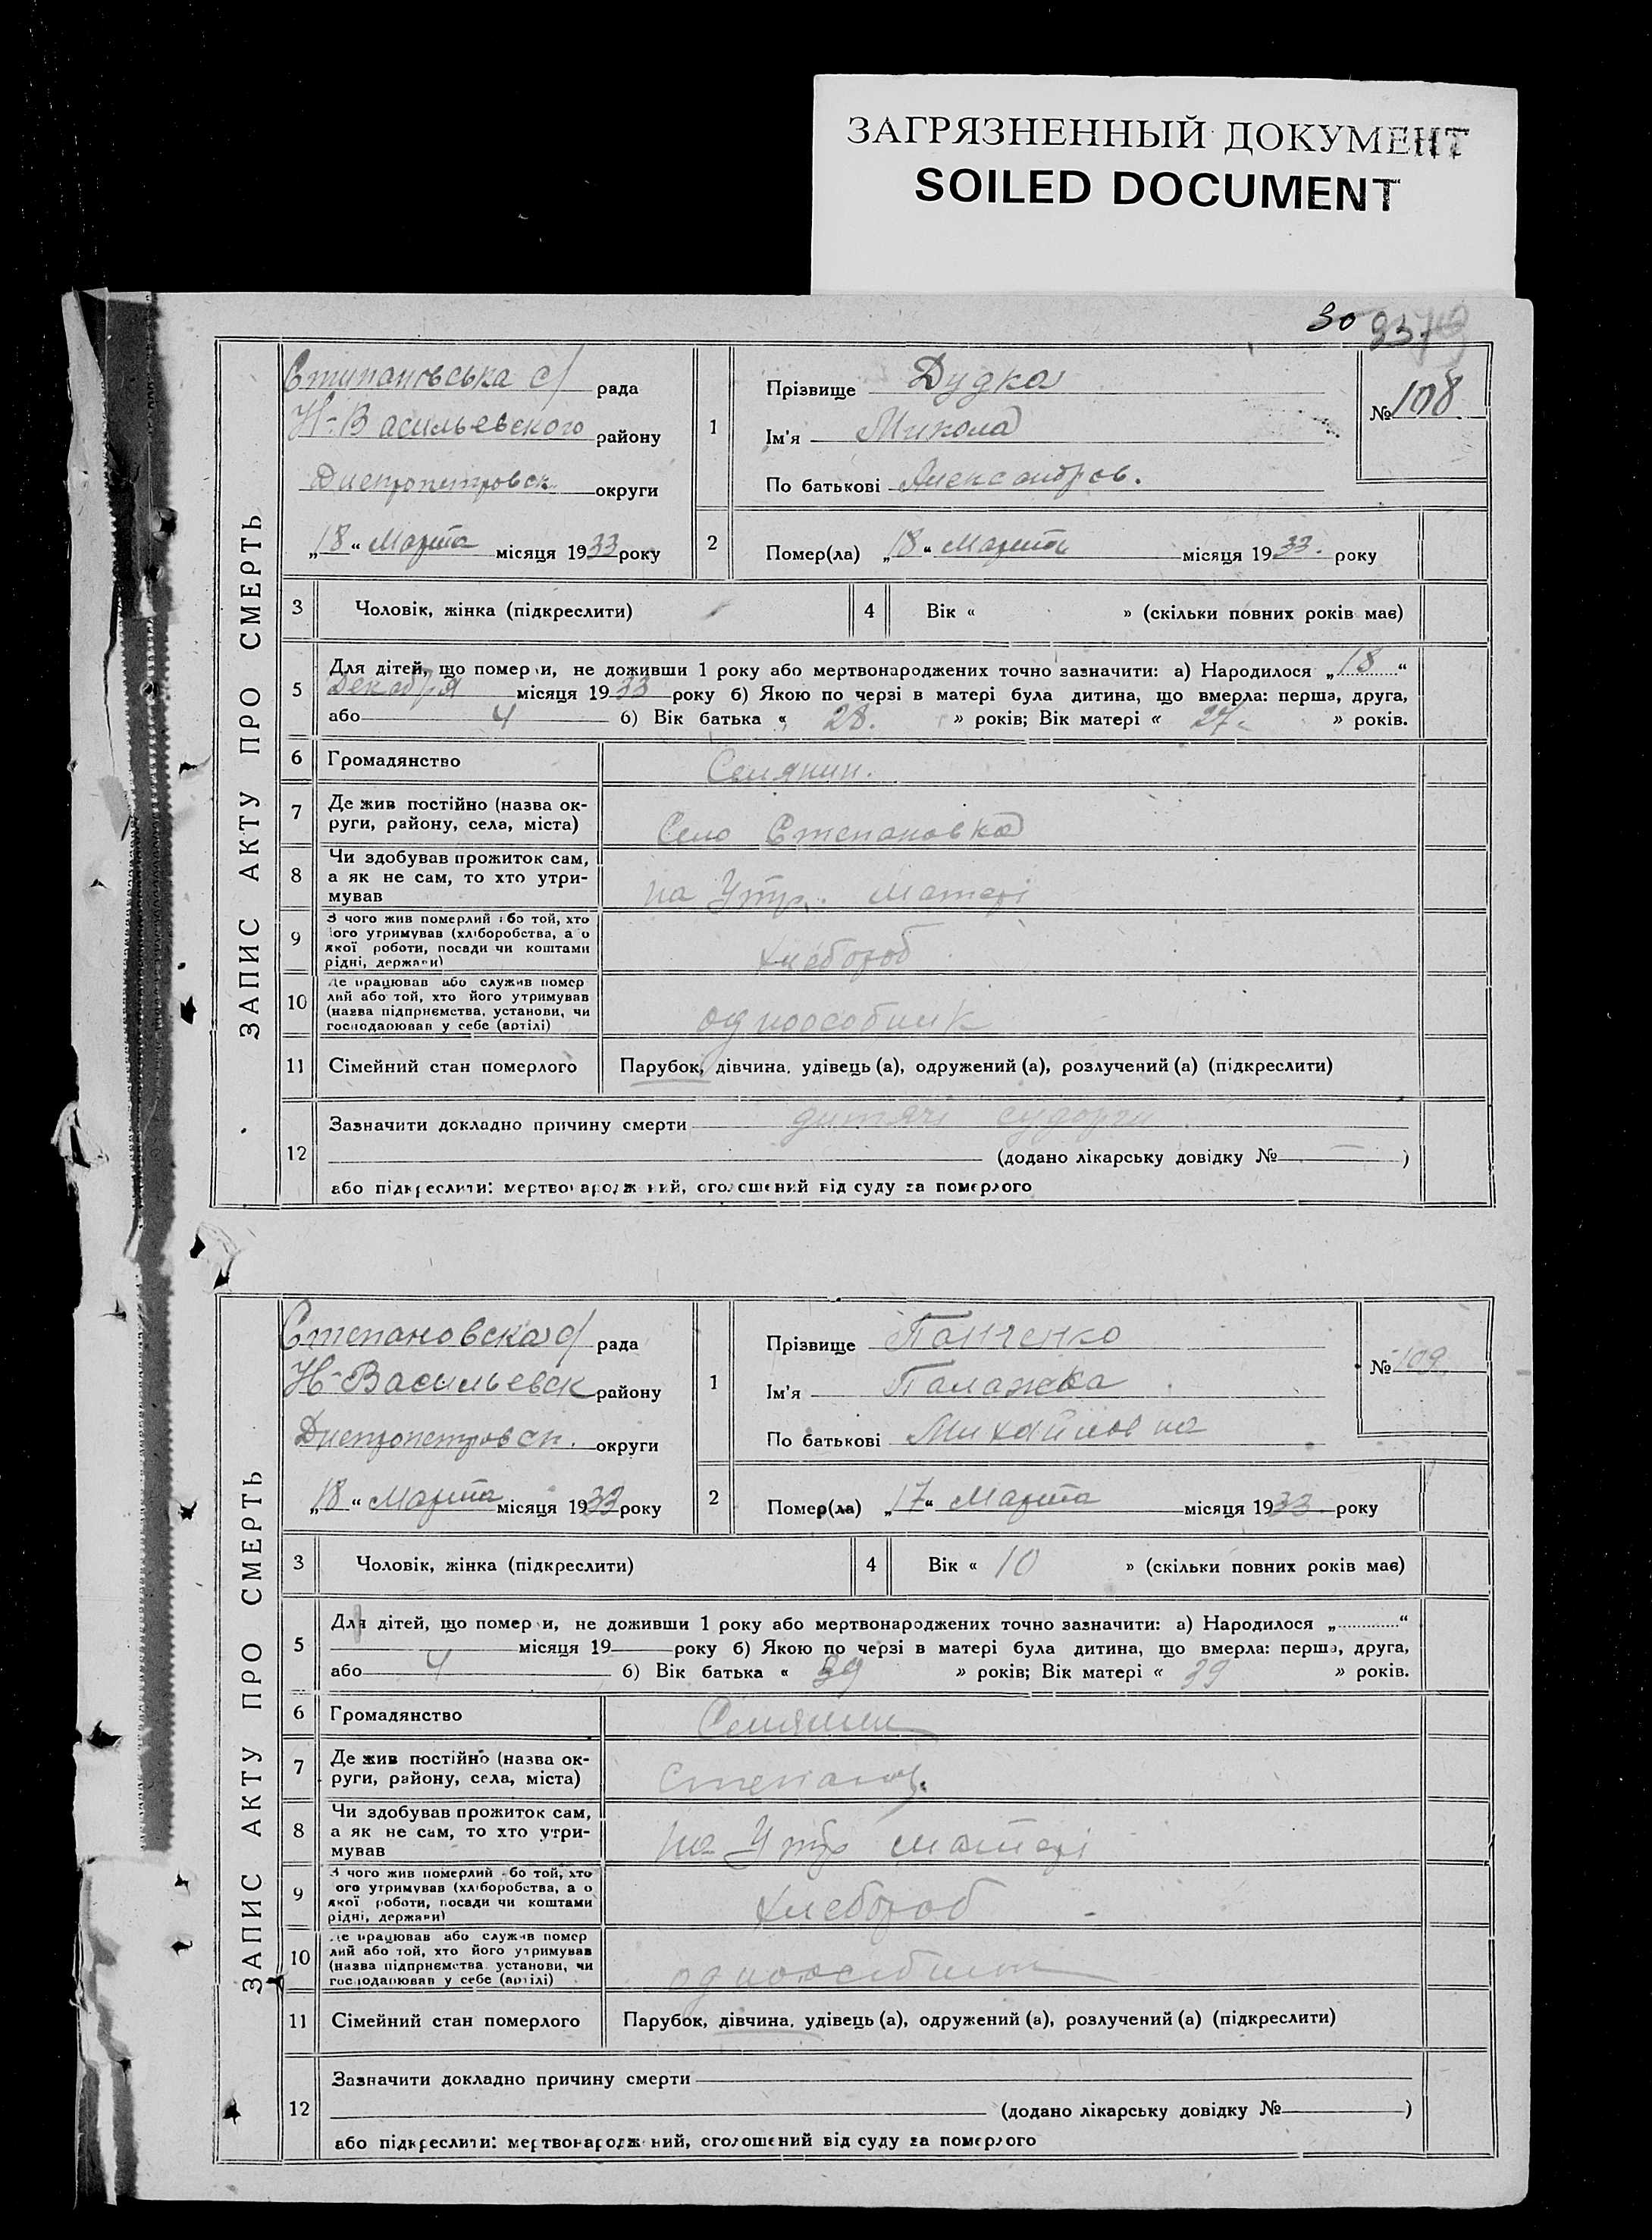 ЗАГРЯЗНЕННЫЙ ДОКУМЕНТ
SOILED DOCUMENT
30
ЗАПИС АКТУ ПРО СМЕРТЬ
Степановська с/ рада
Н-Васильевского району
Днепропетровск округи
„18“ Марта місяця 1933 року
1
Прізвище Дудка
Ім'я Микола
По батькові Александров.
№ 108
2
Помер(ла) „18“ Марта місяця 1933. року
3 Чоловік, жінка (підкреслити)
4 Вік « » (скільки повних років має)
5
Для дітей, що померли, не доживши 1 року або мертвонароджених точно зазначити: а) Народилося „18“
Декабря місяця 1933 року б) Якою по черзі в матері була дитина, що вмерла: перша, друга,
або 4 б) Вік батька « 28. » років; Вік матері « 27. » років.
6 Громадянство Селянин.
7 Де жив постійно (назва ок-
руги, району, села, міста) Село Степановка
8 Чи здобував прожиток сам,
а як не сам, то хто утри-
мував на Утр. матері
9 З чого жив померлий або той, хто
його утримував (хліборобства, або
якої роботи, посади чи коштами
рідні, держави) хлебороб
10 Де працював або служив помер
лий або той, хто його утримував
(назва підприємства, установи, чи
господарював у себе (артілі) одноособник
11 Сімейний стан померлого Парубок, дівчина, удівець (а), одружений (а), розлучений (а) (підкреслити)
12
Зазначити докладно причину смерти дитячі судорги
(додано лікарську довідку № — )
або підкреслити: мертвонароджений, оголошений від суду за померлого
ЗАПИС АКТУ ПРО СМЕРТЬ
Степановска с/ рада
Н-Васильевск району
Днепропетровск. округи
„18“ Марта місяця 1933 року
1
Прізвище Панченко
Ім'я Палажка
По батькові Михайловна
№ 109
2
Помер(ла) „17“ Марта місяця 1933 року
3 Чоловік, жінка (підкреслити)
4 Вік « 10 » (скільки повних років має)
5
Для дітей, що померли, не доживши 1 року або мертвонароджених точно зазначити: а) Народилося „ “
місяця 19 року б) Якою по черзі в матері була дитина, що вмерла: перша, друга,
або 4 б) Вік батька « 39 » років; Вік матері « 39 » років.
6 Громадянство Селянин
7 Де жив постійно (назва ок-
руги, району, села, міста) Степанов.
8 Чи здобував прожиток сам,
а як не сам, то хто утри-
мував на Утр матері
9 З чого жив померлий або той, хто
його утримував (хліборобства, або
якої роботи, посади чи коштами
рідні, держави) хлебороб
10 Де працював або служив помер
лий або той, хто його утримував
(назва підприємства, установи, чи
господарював у себе (артілі) одноособник
11 Сімейний стан померлого Парубок, дівчина, удівець (а), одружений (а), розлучений (а) (підкреслити)
12
Зазначити докладно причину смерти
(додано лікарську довідку № )
або підкреслити: мертвонароджений, оголошений від суду за померлого